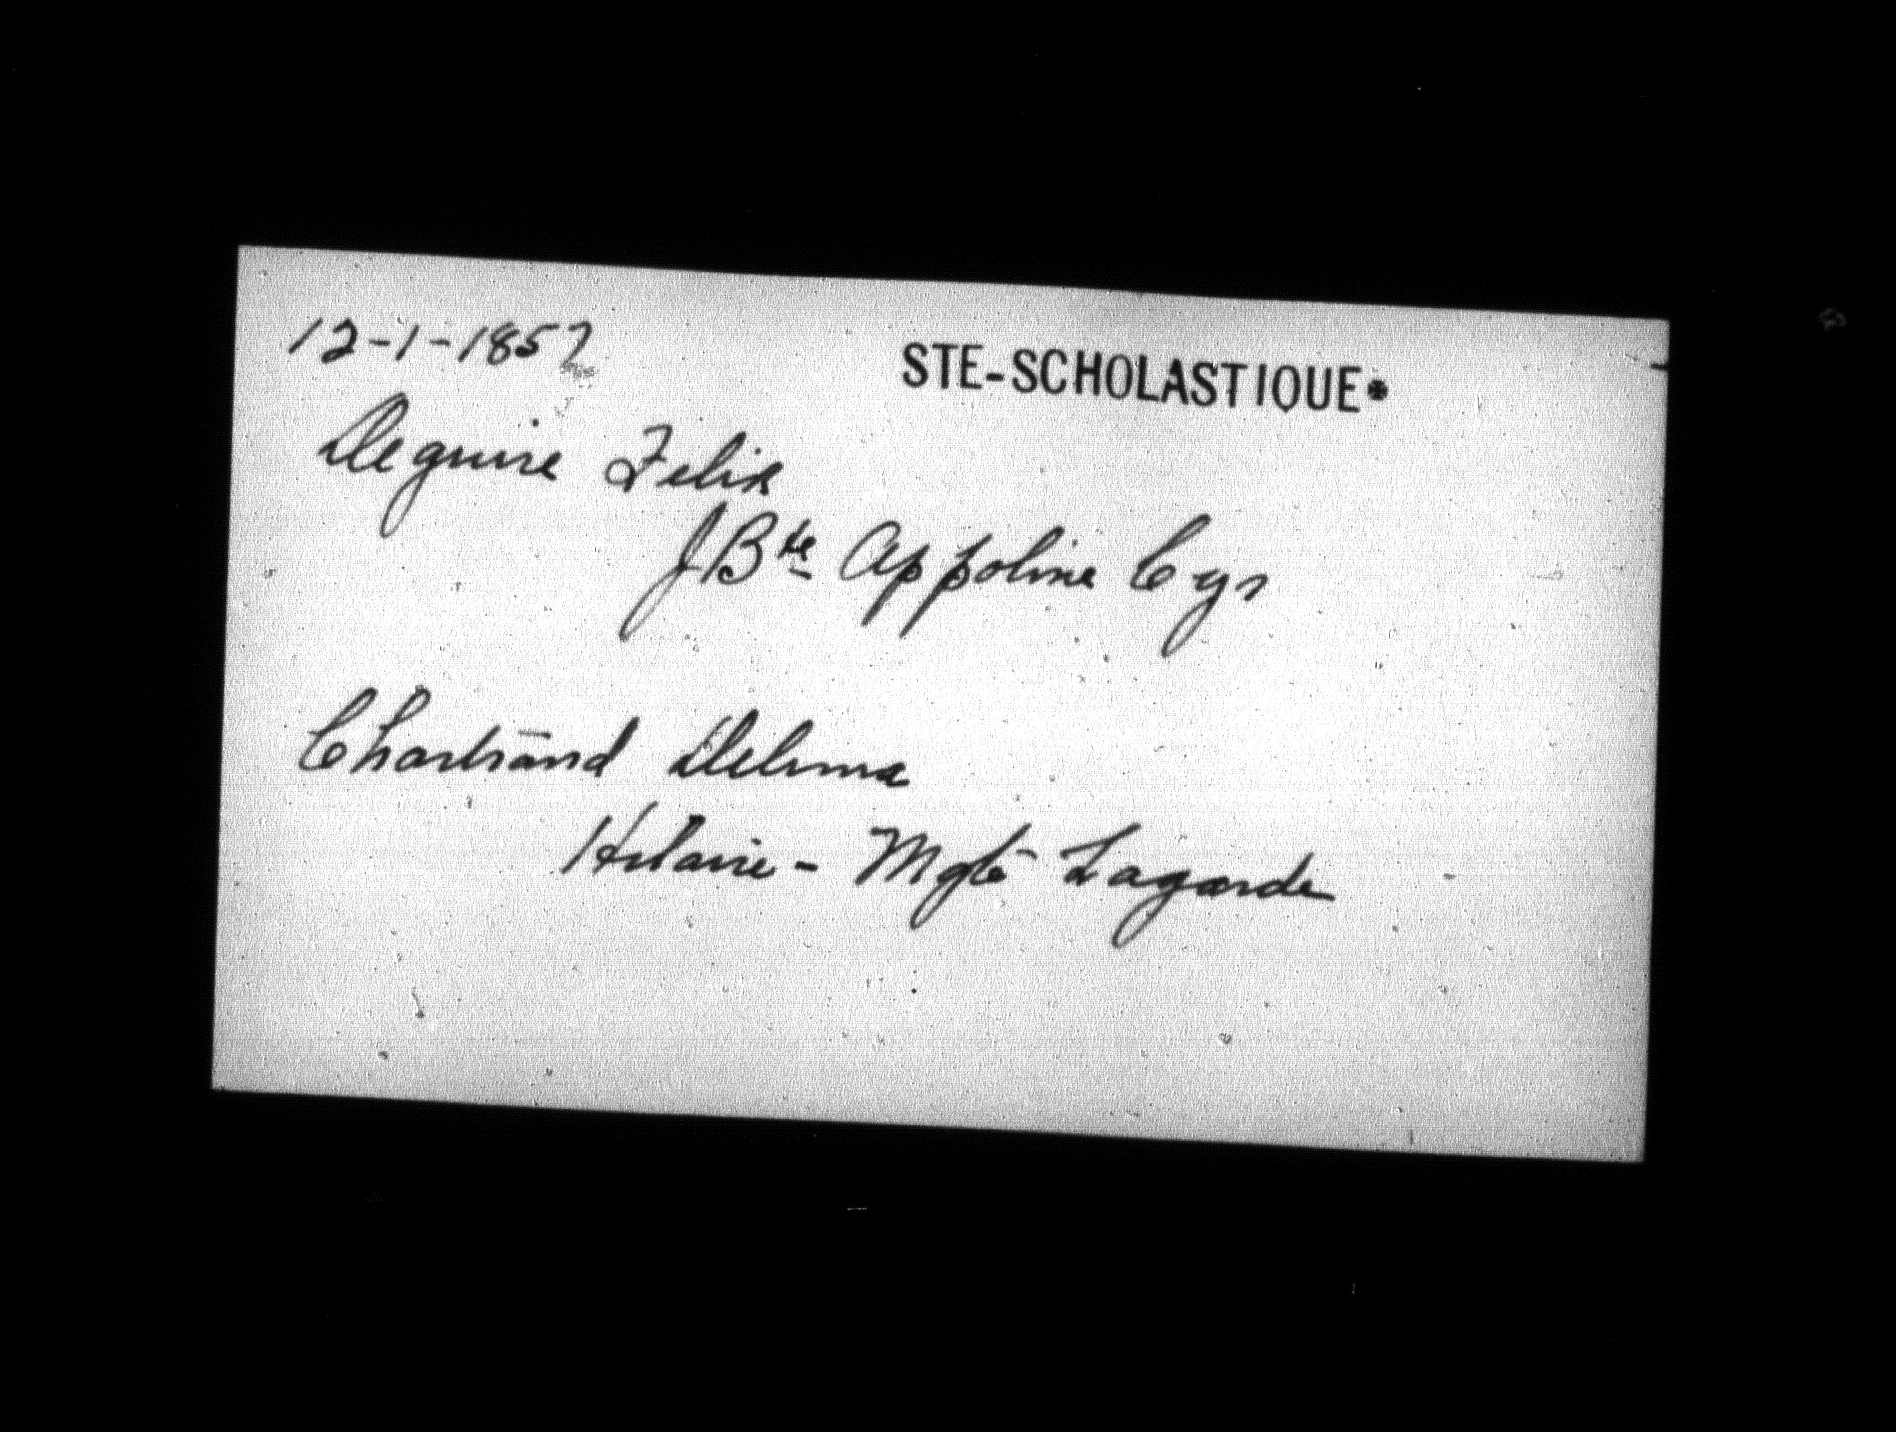 12-1-1857
STE-SCHOLASTIQUE*
Deguire Felix
J Bte Appoline Cyr
Chartrand Delima
Hilaire - Mgte Lagarde